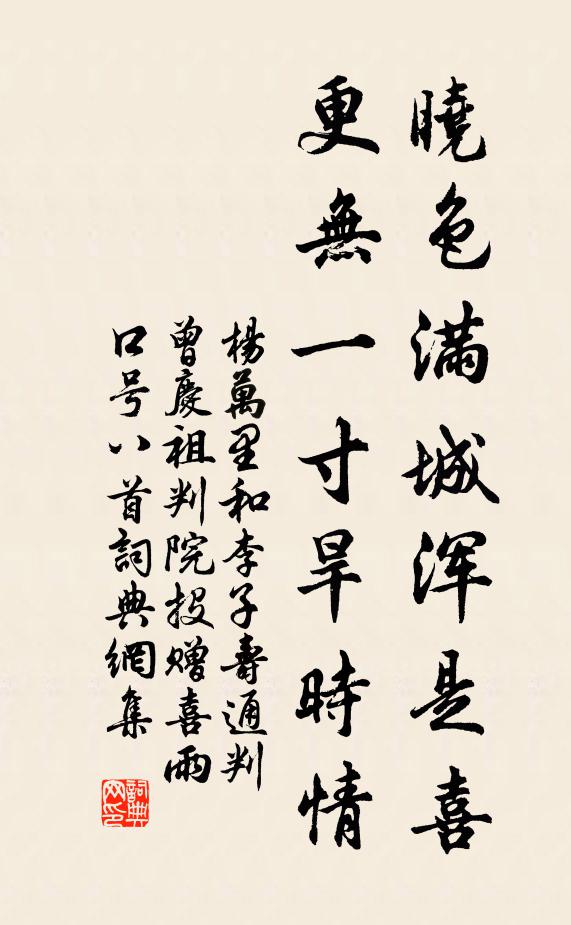 曉色滿城浑是喜
更無一寸旱時情
楊萬里和李子壽通判
曾慶祖判院投贈喜雨
口号八首詞典網集
詞典網印